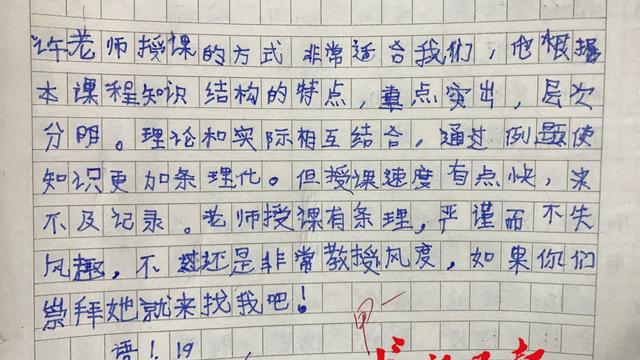 许老师授课的方式非常适合我们，他根据
本课程知识结构的特点，重点突出，层次
分明。理论和实际相互结合，通过例题使
知识更加条理化。但授课速度有点快，来
不及记录。老师授课有条理，严谨而不失
风趣，不过还是非常教授风度，如果你们
崇拜她就来找我吧！
语！19
甲